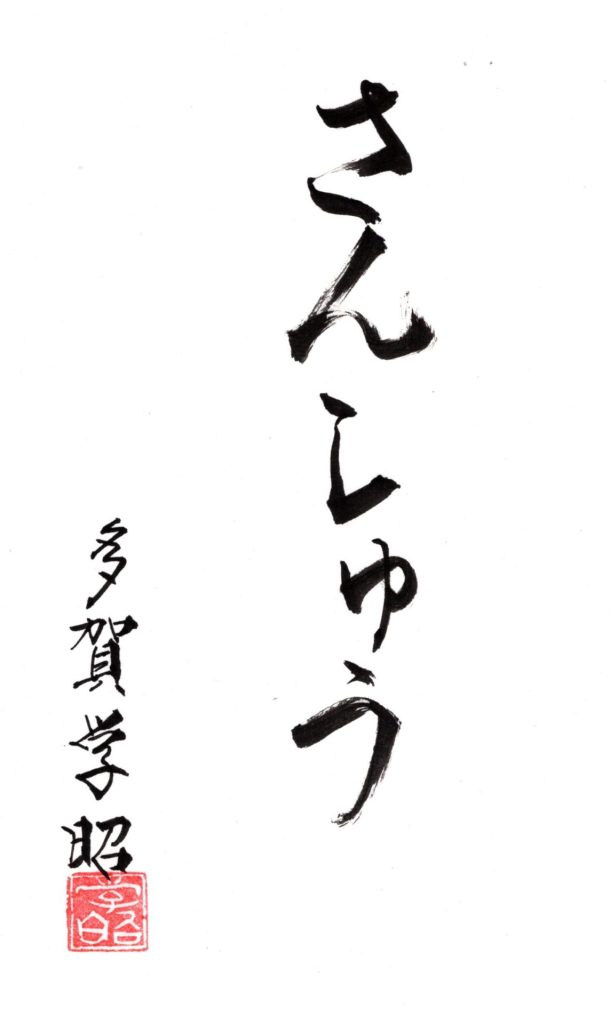 さんしゅう
多賀学昭
学昭